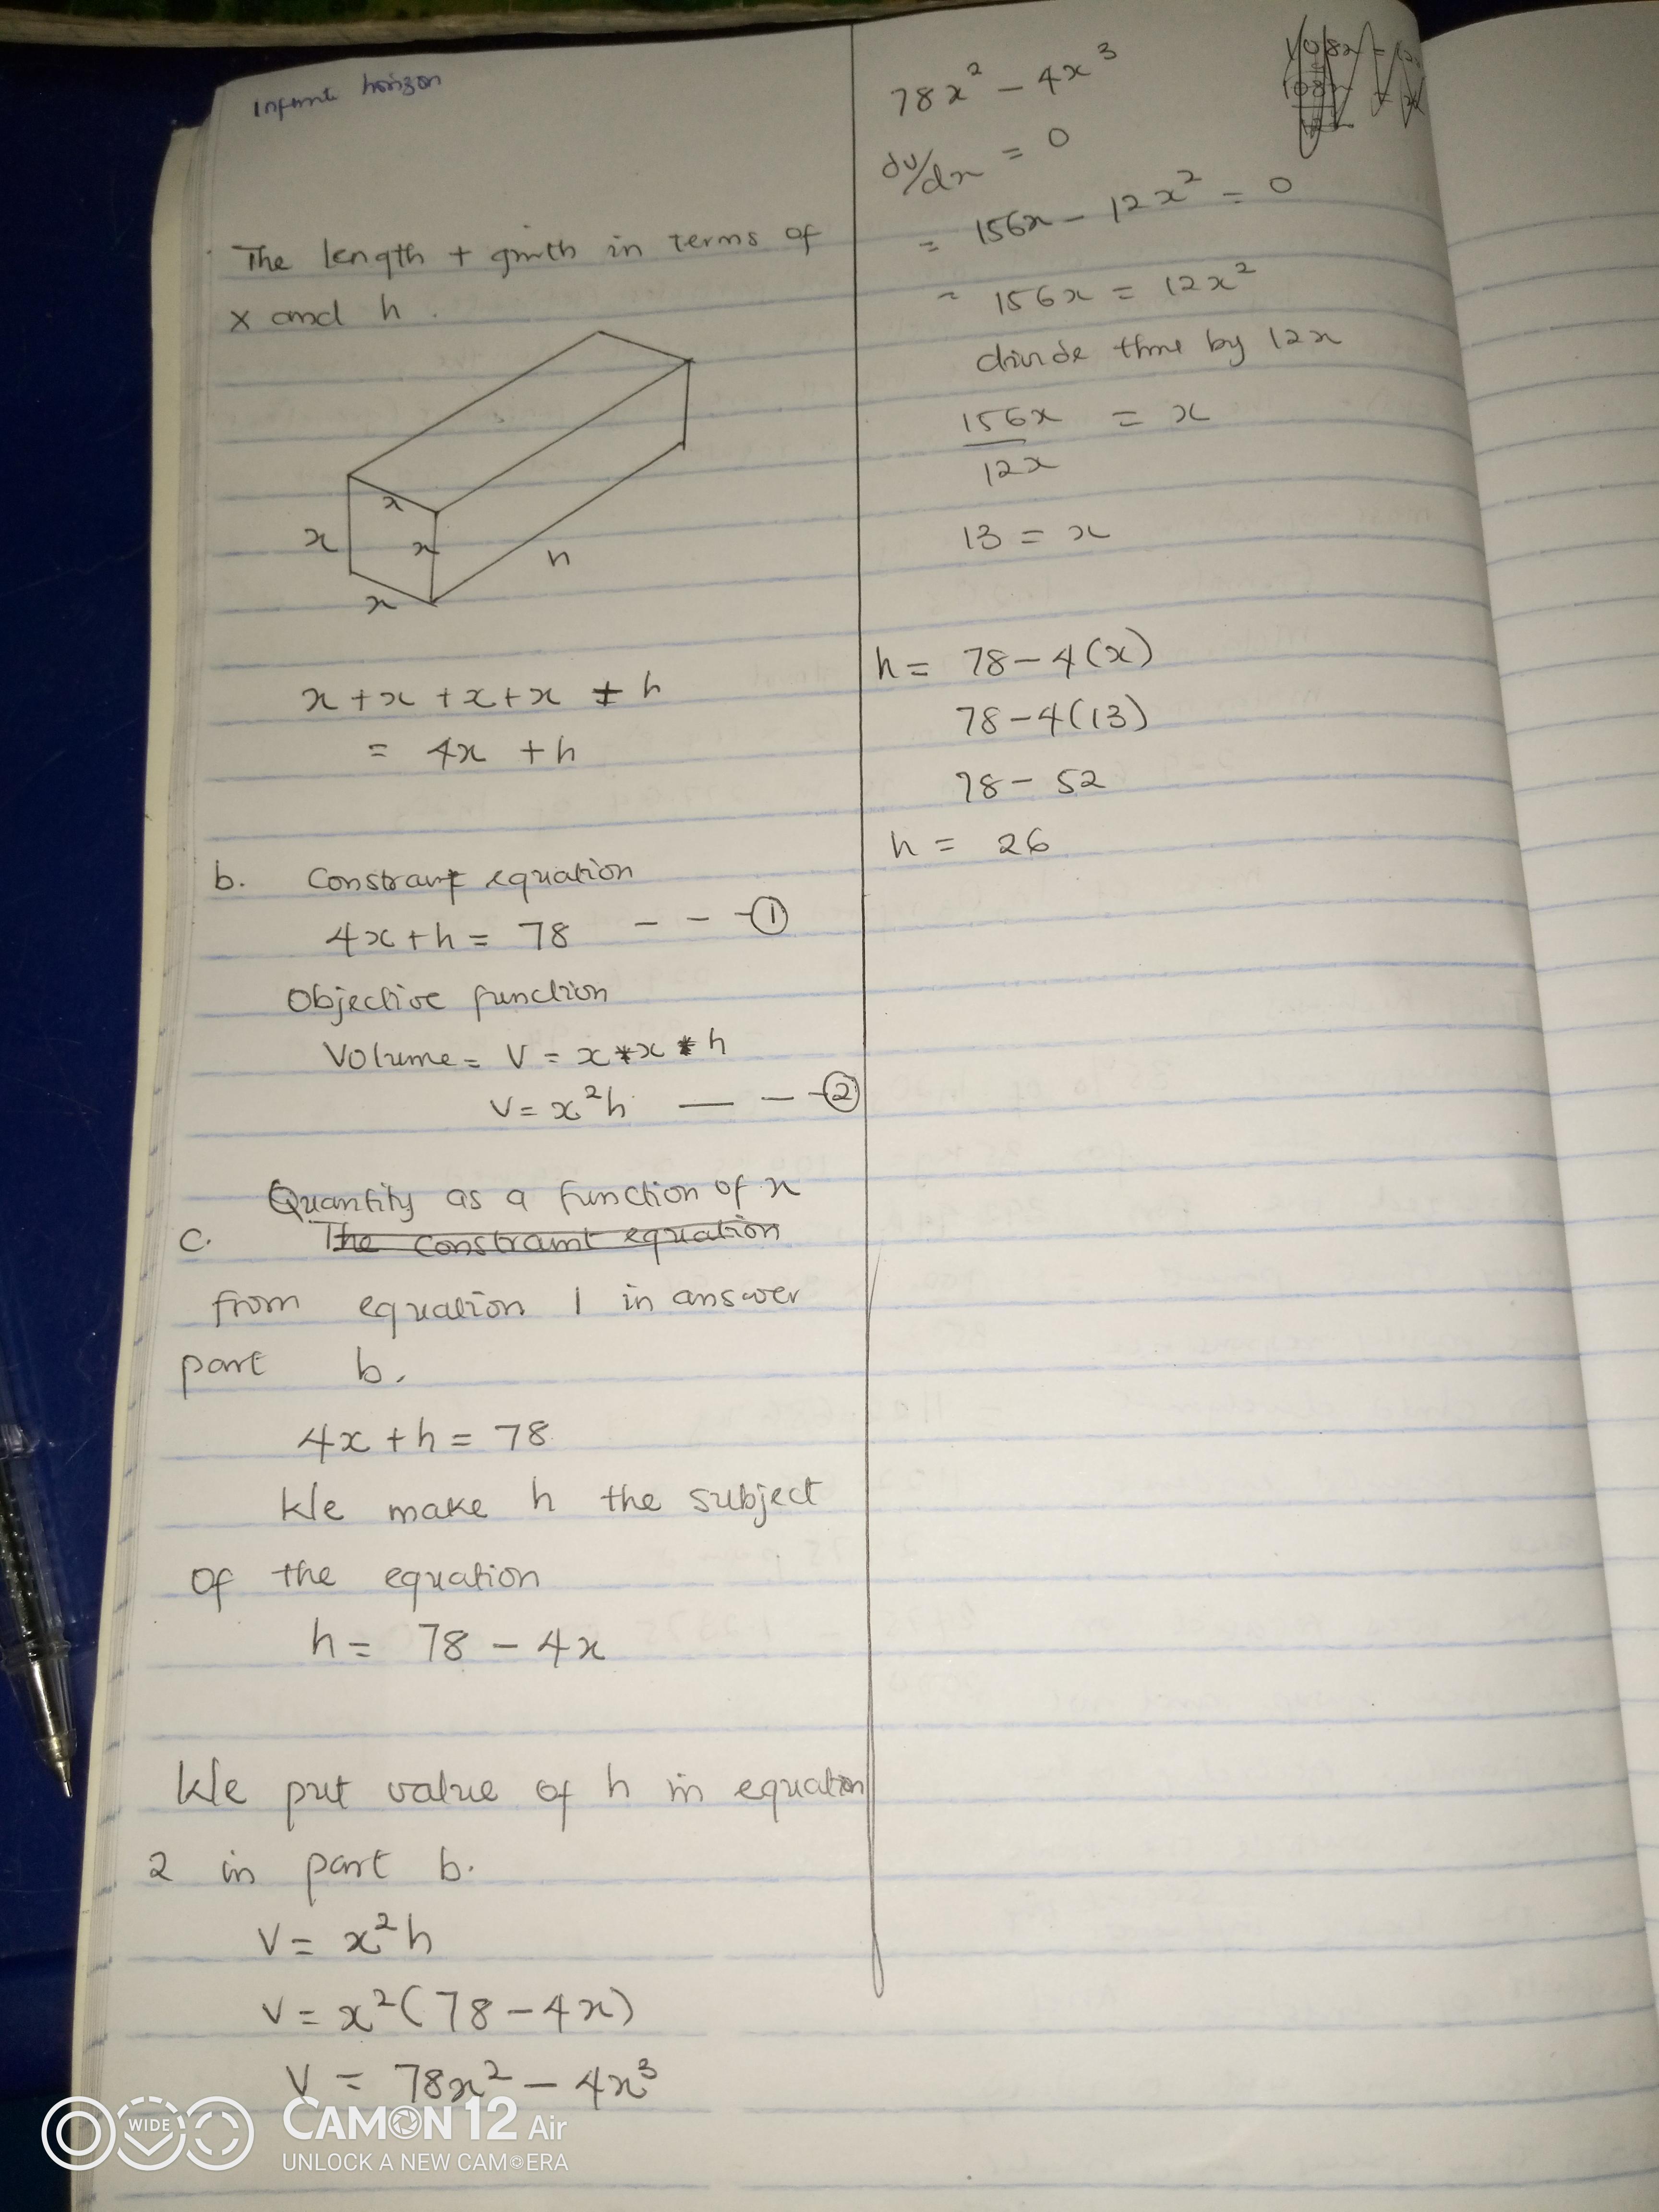 horizon
The length + girth in terms of
x and h.
x
x
x
x
h
x + x + x + x + h
= 4x + h
b. Constraint equation
4x + h = 78 - - - ①
Objective function
Volume = V = x * x * h
V = x²h — - - ②
Quantity as a function of x
c. The constraint equation
from equation 1 in answer
part b.
4x + h = 78
We make h the subject
of the equation
h = 78 - 4x
We put value of h in equation
2 in part b.
V = x²h
V = x²(78 - 4x)
V = 78x² - 4x³
78x² - 4x³
dv/dx = 0
= 156x - 12x² = 0
= 156x = 12x²
divide by 12x
156x/12x = x
13 = x
h = 78 - 4(x)
78 - 4(13)
78 - 52
h = 26
WIDE
CAMON 12 Air
UNLOCK A NEW CAMERA